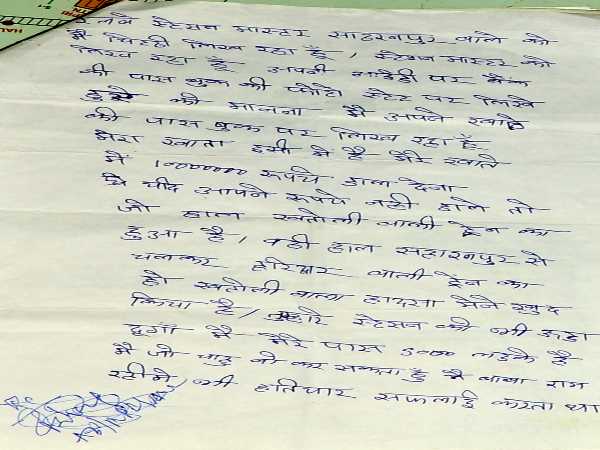 रेलवे स्टेशन मास्टर साहरनपुर वाले को
मैं चिठ्ठी लिख रहा हूँ, स्टेशन मास्टर को
लिख रहा हूँ अपनी पर
की पास बुक की फोटो स्टेट पर लिखे
को भाजना मैं अपने खाते
की पास बुक पर लिख रहा हूँ
मेरा खाता इसी में है मेरे खाते
में 100000000 रूपये डाल देना
ये यदि आपने रूपये नही डाले तो
जो हाल खतोली वाली ट्रेन का
हुआ है, वही हाल सहारनपुर से
चलकर हरिद्वार वाली ट्रेन का
हो खतोली वाला हादसा मैने खुद
किया है, स्टेसन को भी उड़ा
दूगा मैं मेरे पास 5000 लड़के है
मैं जो चाहु वो कर सकता हुँ मैं बाबा राम
रहीम को भी हतियार सफलाई करता था